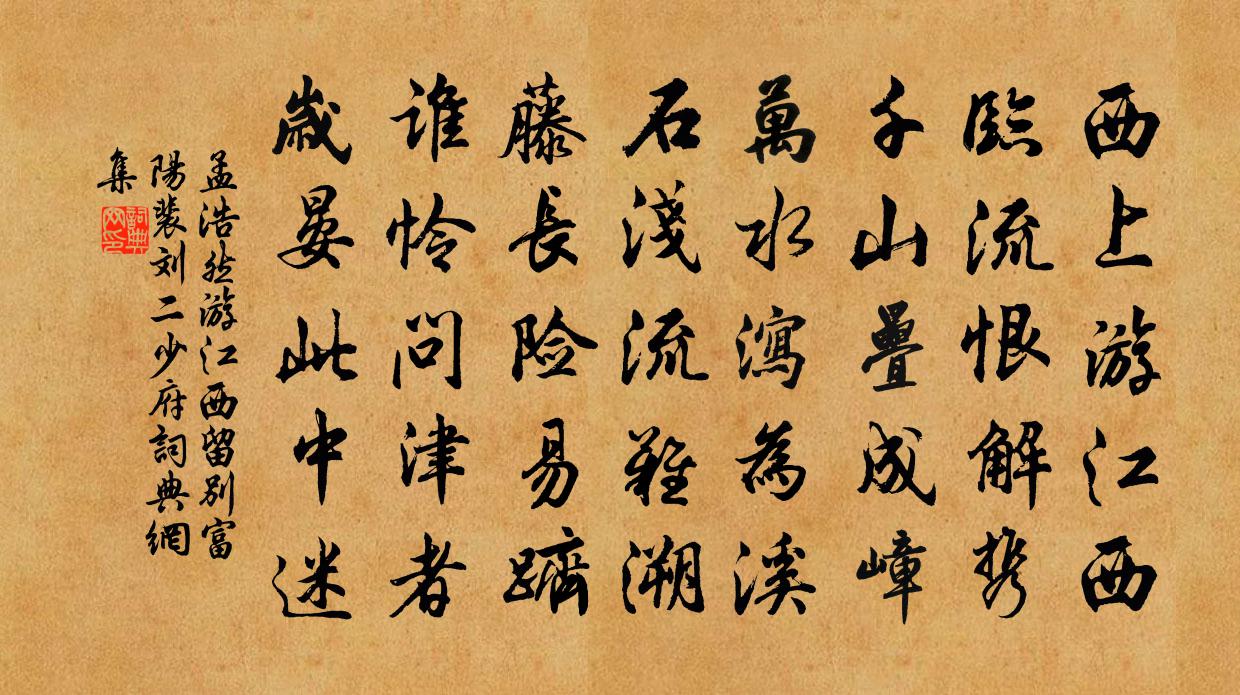 西上游江西
臨流恨解携
千山疊成嶂
萬水瀉為溪
石淺流難溯
藤長险易躋
誰怜問津者
歲晏此中迷
孟浩然游江西留别富
陽裴刘二少府詞典網
集
詞典網印